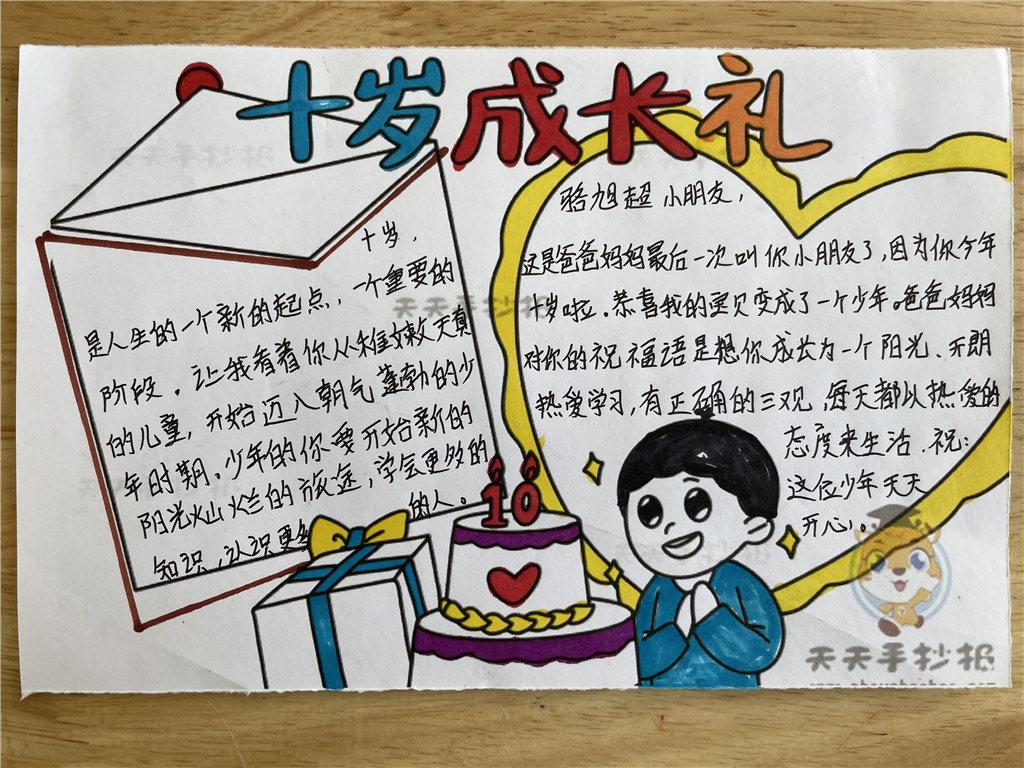 十岁成长礼
十岁，
是人生的一个新的起点，一个重要的
阶段。让我看着你从稚嫩天真
的儿童，开始迈入朝气蓬勃的少
年时期。少年的你要开始新的
阳光灿烂的旅途，学会更多的
知识，认识更多的人。
骆旭超 小朋友，
这是爸爸妈妈最后一次叫你小朋友了，因为你今年
十岁啦。恭喜我的宝贝变成了一个少年。爸爸妈妈
对你的祝福语是想你成长为一个阳光、开朗
热爱学习，有正确的三观，每天都以热爱的
态度来生活。祝：
这位少年天天
开心。
10
天天手抄报